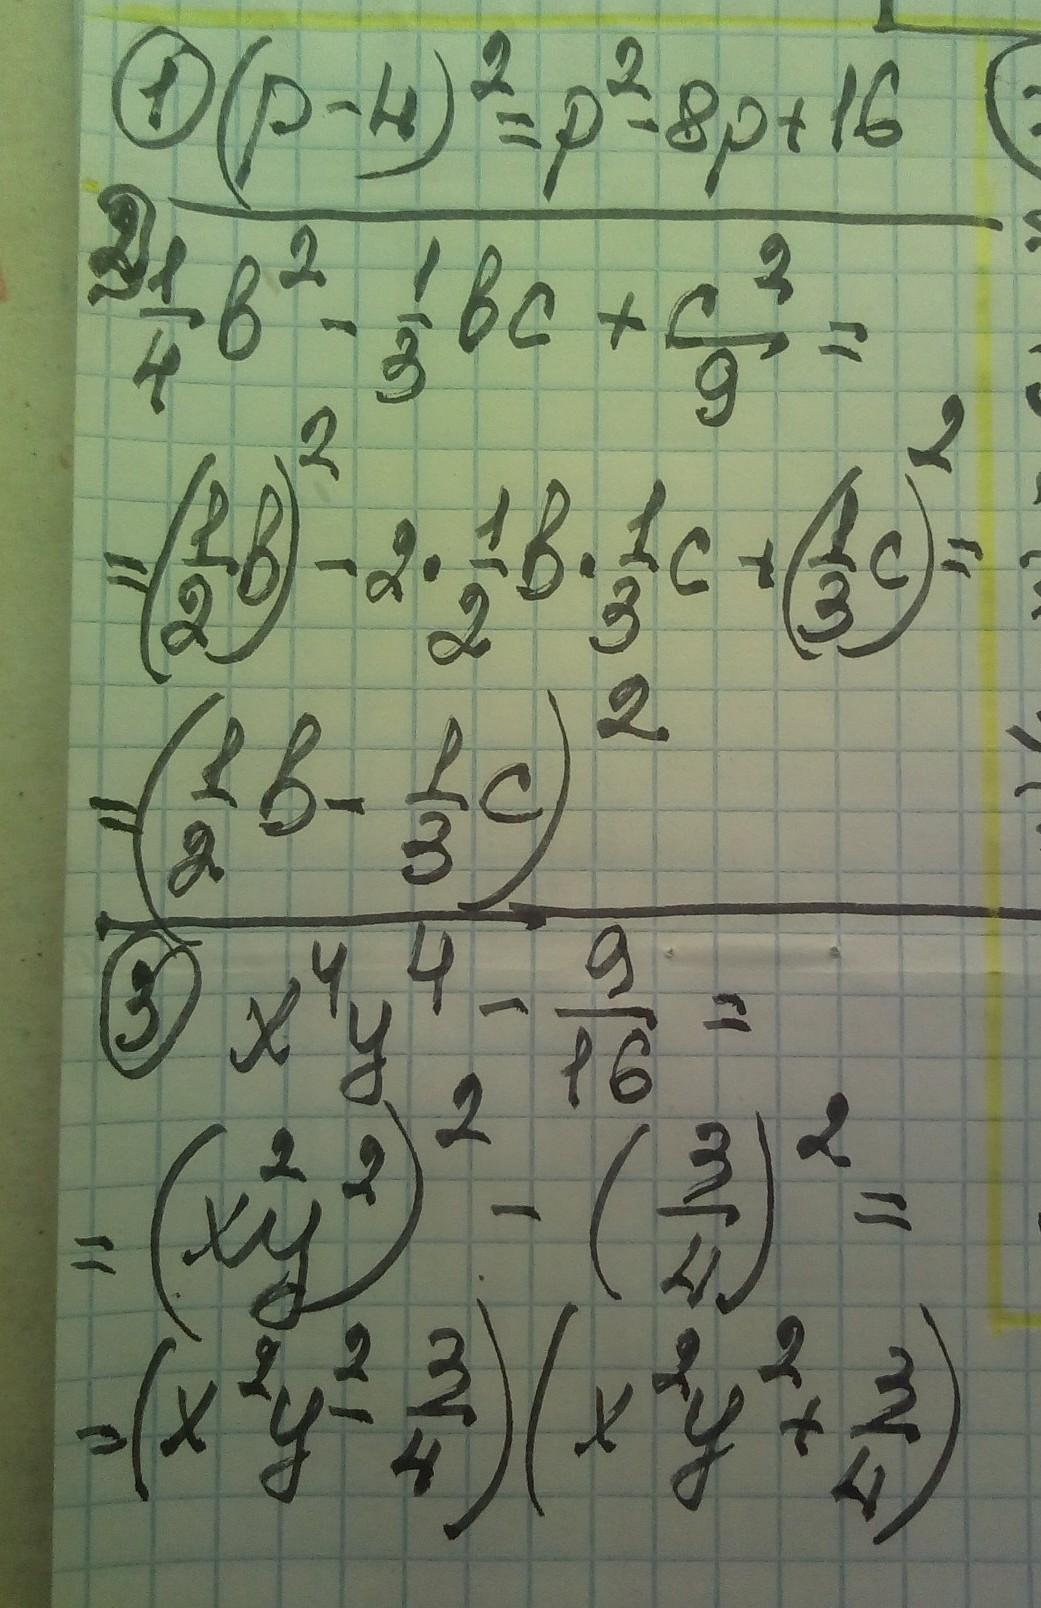 ① (p-4)² = p² - 8p + 16
2) 1/4 b² - 1/3 bc + c²/9 =
= (1/2 b)² - 2 · 1/2 b · 1/3 c + (1/3 c)² =
= (1/2 b - 1/3 c)²
③ x⁴y⁴ - 9/16 =
= (x²y²)² - (3/4)² =
= (x²y² - 3/4)(x²y² + 3/4)